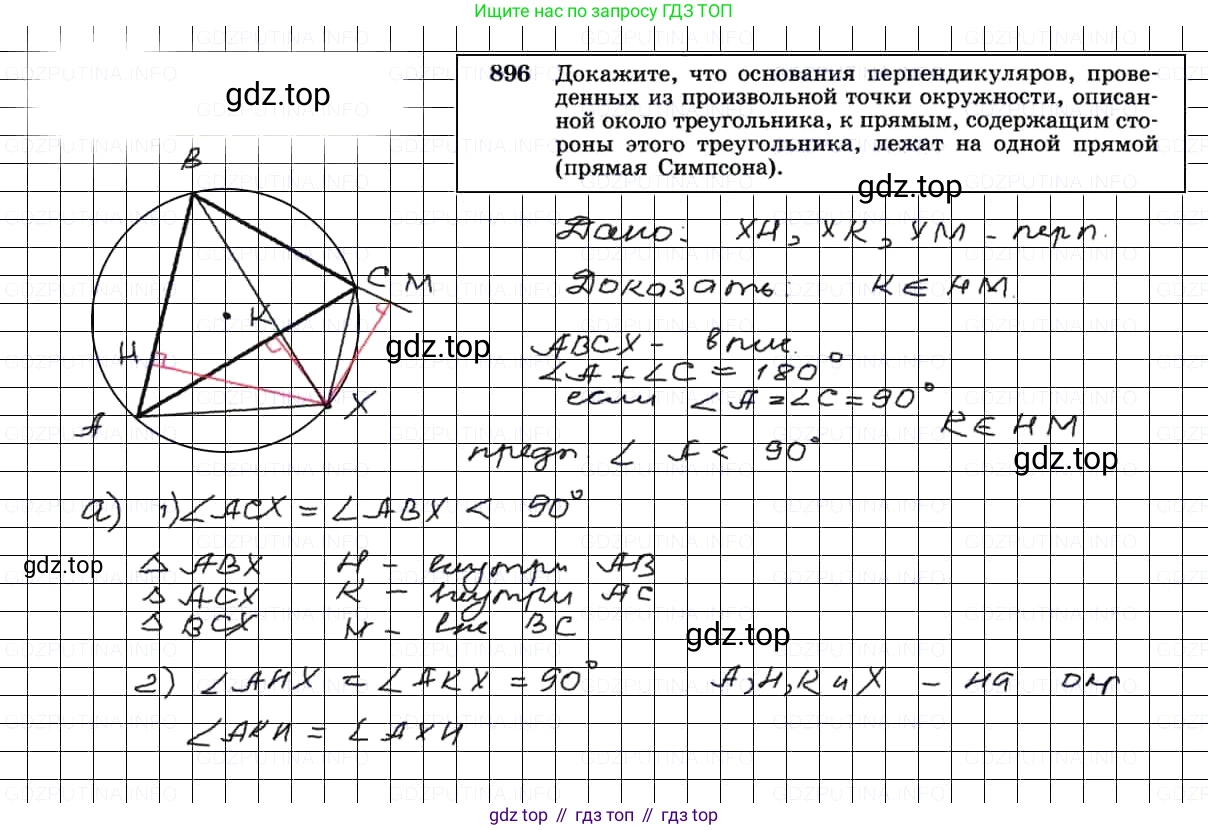 Ищите нас по запросу ГДЗ ТОП
gdz.top
896 Докажите, что основания перпендикуляров, прове-
денных из произвольной точки окружности, описан-
ной около треугольника, к прямым, содержащим сто-
роны этого треугольника, лежат на одной прямой
(прямая Симпсона).
gdz.top
B
Дано: XH, XK, XM - перп.
C M
Доказать K ∈ HM.
K
H
gdz.top
ABCX - впис.
∠A + ∠C = 180°
если ∠A = ∠C = 90°
X
A
K ∈ HM
предп. ∠A < 90°
gdz.top
а) 1) ∠ACX = ∠ABX < 90°
gdz.top
△ ABX H - внутри AB
△ ACX K - внутри AC
△ BCX M - вне BC
gdz.top
2) ∠AHX = ∠AKX = 90° A, H, K и X - на окр
∠AKH = ∠AXH
gdz top // гдз топ // gdz top
GDZPUTINA.INFO